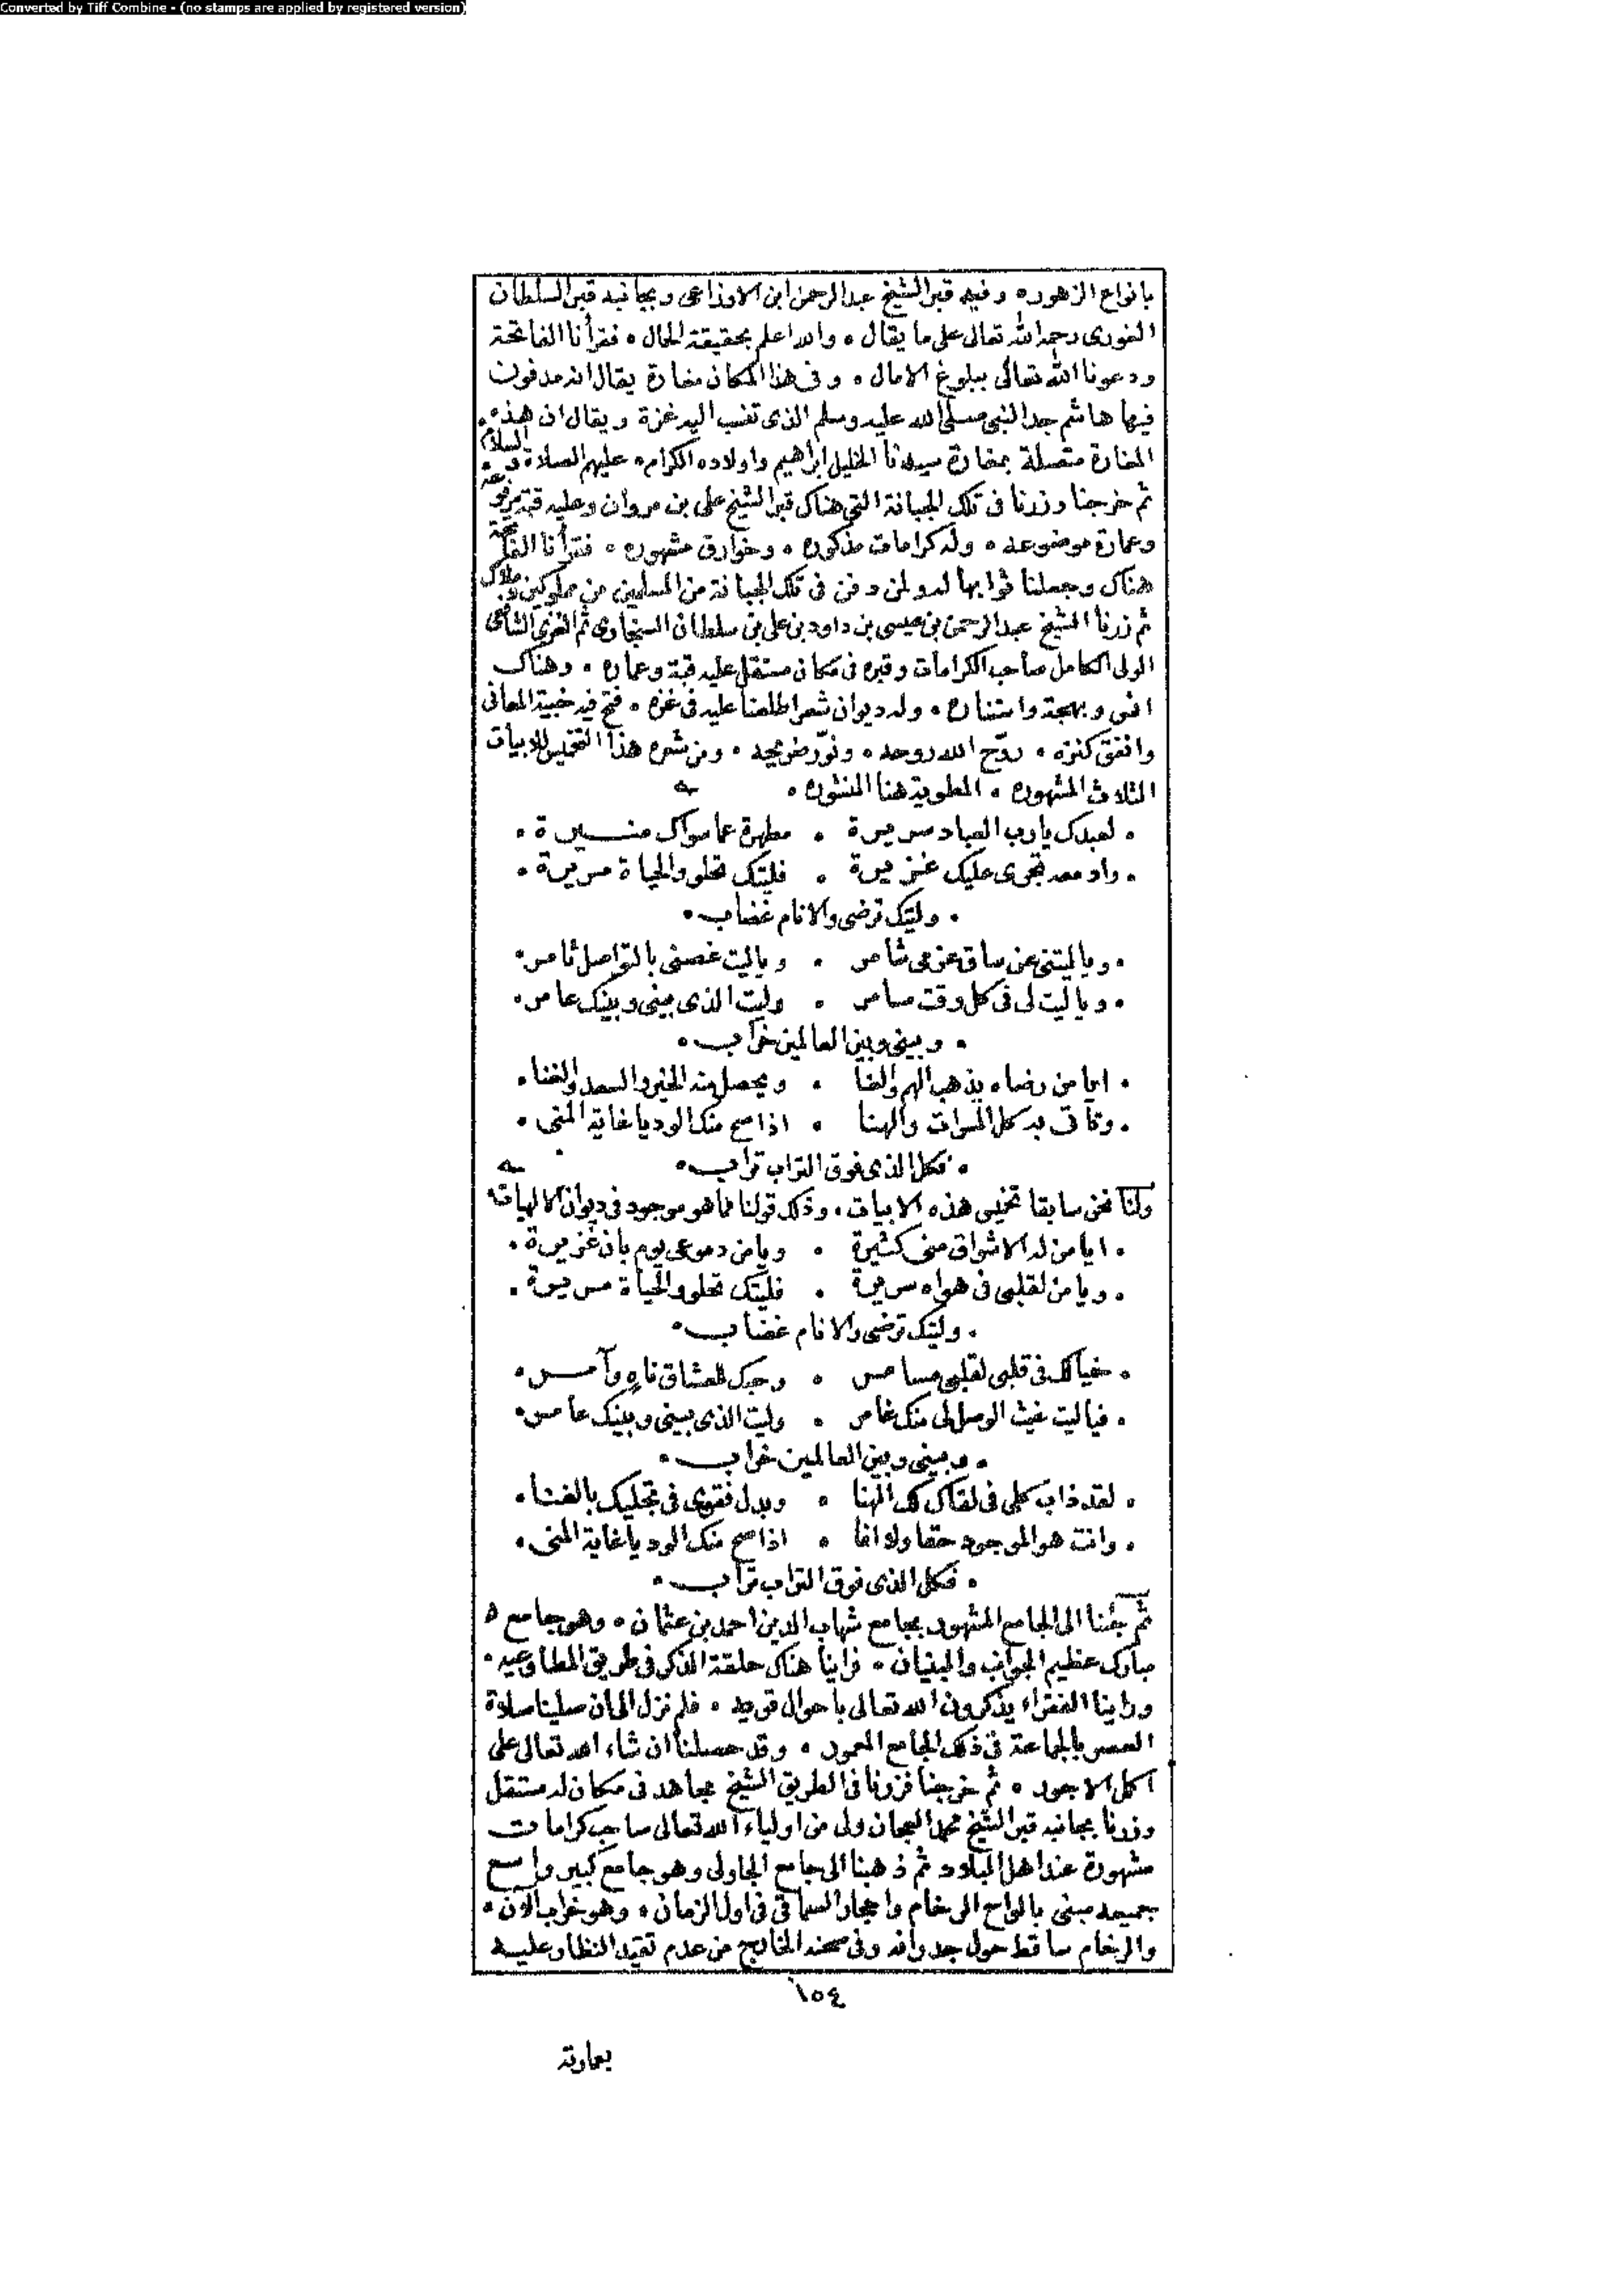 Converted by Tiff Combine - (no stamps are applied by registered version)
بانواع الزهوره وفيه قبر الشيخ عبد الرحمن ابن الاوزاعى وبجانبه قبر السلطان
الغورى رحمه الله تعالى على ما يقال • والله اعلم بحقيقة الحال • فقرأنا الفاتحة
ودعونا الله تعالى ببلوغ الامال • وفى هذا المكان مغارة يقال انه مدفون
فيها هاشم جد النبى صلى الله عليه وسلم الذى تنسب اليه غزة ويقال ان هذه
المغارة متصلة بمغارة سيدنا الخليل ابراهيم واولاده الكرام • عليهم الصلاة والسلام
ثم خرجنا وزرنا فى تلك الجبانة التى هناك قبر الشيخ على بن مروان وعليه قبة مرفوعة
وعمارة موضوعه • وله كرامات مذكوره • وخوارق مشهوره • فقرأنا الفاتحة
هناك وجعلنا ثوابها له ولمن دفن فى تلك الجبانة من المسلمين من مملوكين وملاك
ثم زرنا الشيخ عبد الرحمن بن عيسى بن داود بن على بن سلطان السنجاوى ثم الغزى الشافعى
الولى الكامل صاحب الكرامات وقبره فى مكان مستقل عليه قبة وعماره • وهناك
انس وبهجة واستناره • وله ديوان شعر اطلعنا عليه فى غزه • فتح فيه خبية المعانى
وانفق كنزه • روّح الله روحه • ونوّر ضريحه • ومن شعره هذا التخميس للابيات
الثلاث المشهوره • المطوية هنا المنشوره •
• لعبدك يا رب العباد سريرة • مطهرة عما سواك منيرة •
• وادمعه تجرى عليك غزيرة • فليتك تحلو والحياة مريرة •
• وليتك ترضى والانام غضاب •
• ويا ليتنى عن ساق عزمى شامر • ويا ليت غصنى بالتواصل ثامر •
• ويا ليت لى فى كل وقت مسامر • وليت الذى بينى وبينك عامر •
• وبينى وبين العالمين خراب •
• ايا من رضاه يذهب الهم والعنا • ويحصل منه الخير والسعد والغنا •
• وتأتى به كل المسرات والهنا • اذا صح منك الود يا غاية المنى •
• فكل الذى فوق التراب تراب •
ولنا نحن سابقا تخميس هذه الابيات • وذلك قولنا مما هو موجود فى ديوان الالهيات
• ايا من له الاشواق منى كثيرة • ويا من دموعى يوم بان غزيرة •
• ويا من لقلبى فى هواه سريرة • فليتك تحلو والحياة مريرة •
• وليتك ترضى والانام غضاب •
• خيالك فى قلبى لقلبى مسامر • وحبك للعشاق ناهٍ وآمر •
• فيا ليت غيث الوصل لى منك غامر • وليت الذى بينى وبينك عامر •
• وبينى وبين العالمين خراب •
• لقد ذاب كلى فى لقاك لك الهنا • وبدل فقرى فى تجليك بالغنا •
• وانت هو الموجود حقا ولا انا • اذا صح منك الود يا غاية المنى •
• فكل الذى فوق التراب تراب •
ثم جئنا الى الجامع المشهور بجامع شهاب الدين احمد بن عثمان • وهو جامع
مبارك عظيم الجوانب والبنيان • فراينا هناك حلقة الذكر فى طريق المطاوعيه •
وراينا الفقراء يذكرون الله تعالى باحوال قويه • فلم نزل الى ان صلينا صلاة
العصر بالجماعة فى ذلك الجامع المعمور • وقد حصلنا ان شاء الله تعالى على
اكمل الاجور • ثم خرجنا فزرنا فى الطريق الشيخ مجاهد فى مكان له مستقل
وزرنا بجانبه قبر الشيخ محمد العجان ولى من اولياء الله تعالى صاحب كرامات
مشهورة عند اهل البلاد ثم ذهبنا الى جامع الجاولى وهو جامع كبير واسع
جميعه مبنى بالواح الرخام واحجار السماقى فى اول الزمان • وهو خراب الآن •
والرخام ساقط حول جدرانه وفى صحنه الخارج من عدم تقيد النظار عليه
١٥٤
بعمارته